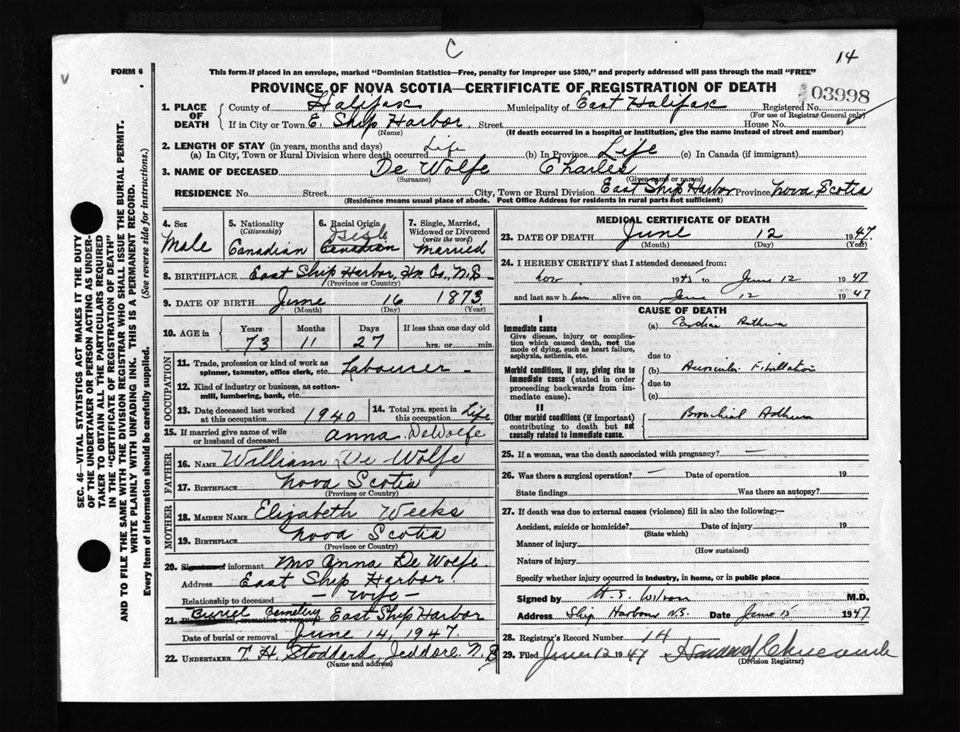 C
14
FORM 6
This form if placed in an envelope, marked "Dominion Statistics—Free, penalty for improper use $300," and properly addressed will pass through the mail "FREE"
PROVINCE OF NOVA SCOTIA—CERTIFICATE OF REGISTRATION OF DEATH
03998
1. PLACE OF DEATH
County of Halifax Municipality of East Halifax Registered No.
(For use of Registrar General only)
If in City or Town E. Ship Harbor Street House No.
(Name) (If death occurred in a hospital or institution, give the name instead of street and number)
2. LENGTH OF STAY (in years, months and days)
(a) In City, Town or Rural Division where death occurred Life (b) In Province Life (c) In Canada (if immigrant)
3. NAME OF DECEASED De Wolfe Charles
(Surname) (Given name or names)
RESIDENCE No. Street City, Town or Rural Division East Ship Harbor Province Nova Scotia
(Residence means usual place of abode. Post Office Address for residents in rural parts not sufficient)
4. Sex
Male
5. Nationality
(Citizenship)
Canadian
6. Racial Origin
Canadian
7. Single, Married, Widowed or Divorced
(write the word)
Married
8. BIRTHPLACE East Ship Harbor, Hx Co., N.S.
(Province or Country)
9. DATE OF BIRTH June 16 1873
(Month) (Day) (Year)
10. AGE in Years Months Days If less than one day old
73 11 27 hrs. or min.
OCCUPATION
11. Trade, profession or kind of work as
spinner, teamster, office clerk, etc. Labourer
12. Kind of industry or business, as cotton-
mill, lumbering, bank, etc.
13. Date deceased last worked
at this occupation 1940
14. Total yrs. spent in
this occupation Life
15. If married give name of wife
or husband of deceased Anna DeWolfe
FATHER
16. NAME William De Wolfe
17. BIRTHPLACE Nova Scotia
(Province or Country)
MOTHER
18. MAIDEN NAME Elizabeth Weeks
19. BIRTHPLACE Nova Scotia
(Province or Country)
20. Signature of informant Mrs Anna De Wolfe
Address East Ship Harbor
Relationship to deceased - Wife -
21. Burrel Cemetery East Ship Harbor
Date of burial or removal June 14, 1947
22. UNDERTAKER T. H. Stoddard, Jeddore N.S
(Name and address)
MEDICAL CERTIFICATE OF DEATH
23. DATE OF DEATH June 12 1947
(Month) (Day) (Year)
24. I HEREBY CERTIFY that I attended deceased from:
Nov 1945 to June 12 1947
and last saw him alive on June 12 1947
CAUSE OF DEATH
I
Immediate cause
Give disease, injury or complication which caused death, not the mode of dying, such as heart failure, asphyxia, asthenia, etc.
(a) Cardiac Asthma
due to
Morbid conditions, if any, giving rise to immediate cause (stated in order proceeding backwards from immediate cause).
(b) Auricular Fibrillation
due to
(c)
II
Other morbid conditions (if important) contributing to death but not causally related to immediate cause.
Bronchial Asthma
25. If a woman, was the death associated with pregnancy? —
26. Was there a surgical operation? — Date of operation 19
State findings Was there an autopsy?
27. If death was due to external causes (violence) fill in also the following:—
Accident, suicide or homicide? Date of injury 19
(State which)
Manner of injury
(How sustained)
Nature of injury
Specify whether injury occurred in industry, in home, or in public place
Signed by H. S. Wilson M.D.
Address Ship Harbour N.S. Date June 15 1947
28. Registrar's Record Number 14
29. Filed June 12 1947
(Division Registrar)
SEC. 46—VITAL STATISTICS ACT MAKES IT THE DUTY
OF THE UNDERTAKER OR PERSON ACTING AS UNDER-
TAKER TO OBTAIN ALL THE PARTICULARS REQUIRED
IN THE "CERTIFICATE OF REGISTRATION OF DEATH"
AND TO FILE THE SAME WITH THE DIVISION REGISTRAR WHO SHALL ISSUE THE BURIAL PERMIT.
WRITE PLAINLY WITH UNFADING INK. THIS IS A PERMANENT RECORD.
Every item of information should be carefully supplied. (See reverse side for instructions.)